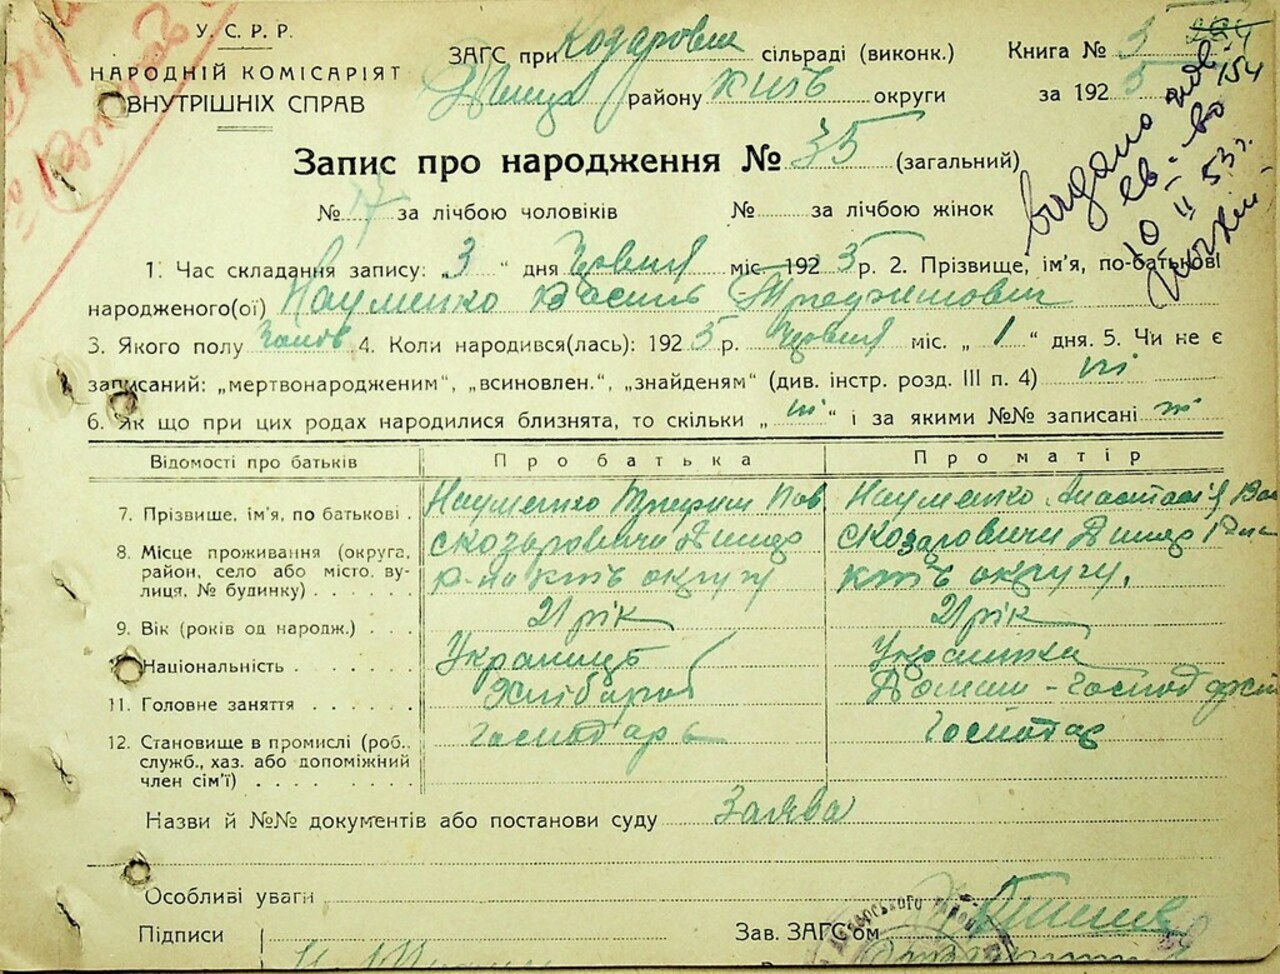 У.С.Р.Р.
НАРОДНІЙ КОМІСАРІЯТ
ВНУТРІШНІХ СПРАВ
ЗАГС при Козаровиц сільраді (виконк.)
Димер району Київ округи
Книга № 3
за 1925
154
видано нов.
св-во
10 II 53 г.
Запис про народження № 35 (загальний)
№ 17 за лічбою чоловіків № за лічбою жінок
1. Час складання запису: „3“ дня Червня міс 1925 р. 2. Прізвище, ім'я, по-батькові
народженого(ої) Науменко Василь
3. Якого полу Чолов 4. Коли народився(лась): 1925 р. Червня міс. „1“ дня. 5. Чи не є
записаний: „мертвонародженим“, „всиновлен.“, „знайденям“ (див. інстр. розд. III п. 4) ні
6. Як що при цих родах народилися близнята, то скільки „ні“ і за якими №№ записані ні
Відомості про батьків Про батька Про матір
7. Прізвище, ім'я, по батькові . Науменко Трифон Пав. Науменко Анастасія Ва
8. Місце проживання (округа, район, село або місто, вулиця, № будинку) . . . . . .
с Козаровичи Димер
р-на Київ округу
с Козаровичи Димер
Київ округу.
9. Вік (років од народж.) . . . 21 рік 21 рік
10. Національність . . . . . . . Українець Українка
11. Головне заняття . . . . . . Хлібороб Домаш-господарст
12. Становище в промислі (роб., служб., хаз. або допоміжний член сім'ї) . . . . . . . господарь Господар
Назви й №№ документів або постанови суду Заява
Особливі уваги
Підписи
Зав. ЗАГС'ом